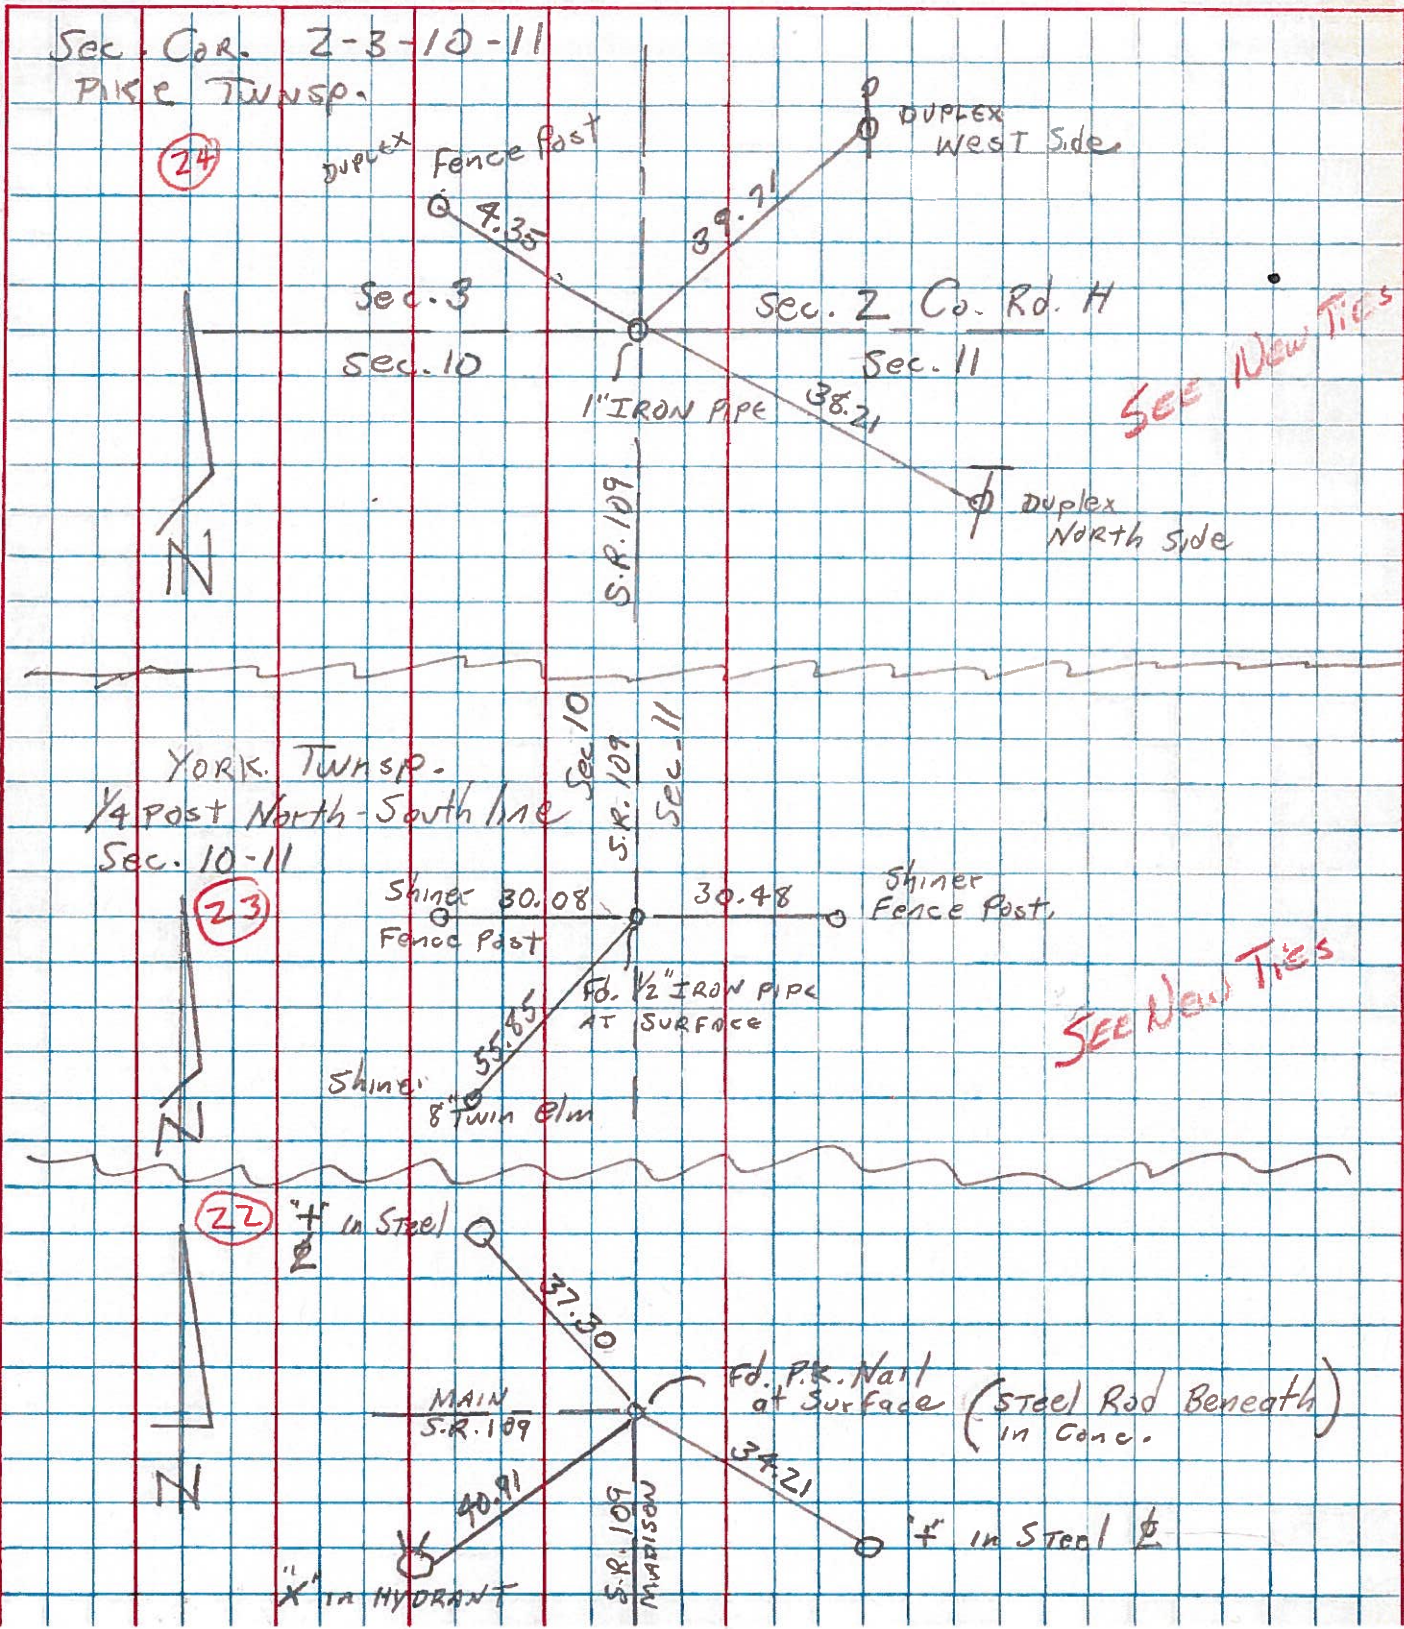 Sec. Cor. 2-3-10-11
Pike Twnsp.
24
DUPLEX Fence Post
DUPLEX
West Side
4.35
39.71
Sec. 3
Sec. 2 Co. Rd. H
Sec. 10
Sec. 11
1" IRON PIPE
38.21
SEE NEW TIES
S.R. 109
Duplex
North Side
N
York Twnsp.
1/4 post North-South line
Sec. 10-11
Sec 10
S.R. 109
Sec. 11
23
Shiner
Fence Post
30.08
30.48
Shiner
Fence Post.
Fd. 1/2" IRON PIPE
AT SURFACE
55.85
Shiner
8" Twin elm
SEE NEW TIES
N
22
"+" in Steel
37.30
MAIN
S.R. 109
Fd. P.K. Nail
at Surface
(Steel Rod Beneath
in Conc.)
34.21
40.91
S.R. 109
MADISON
"+" in Steel
"X" in HYDRANT
N